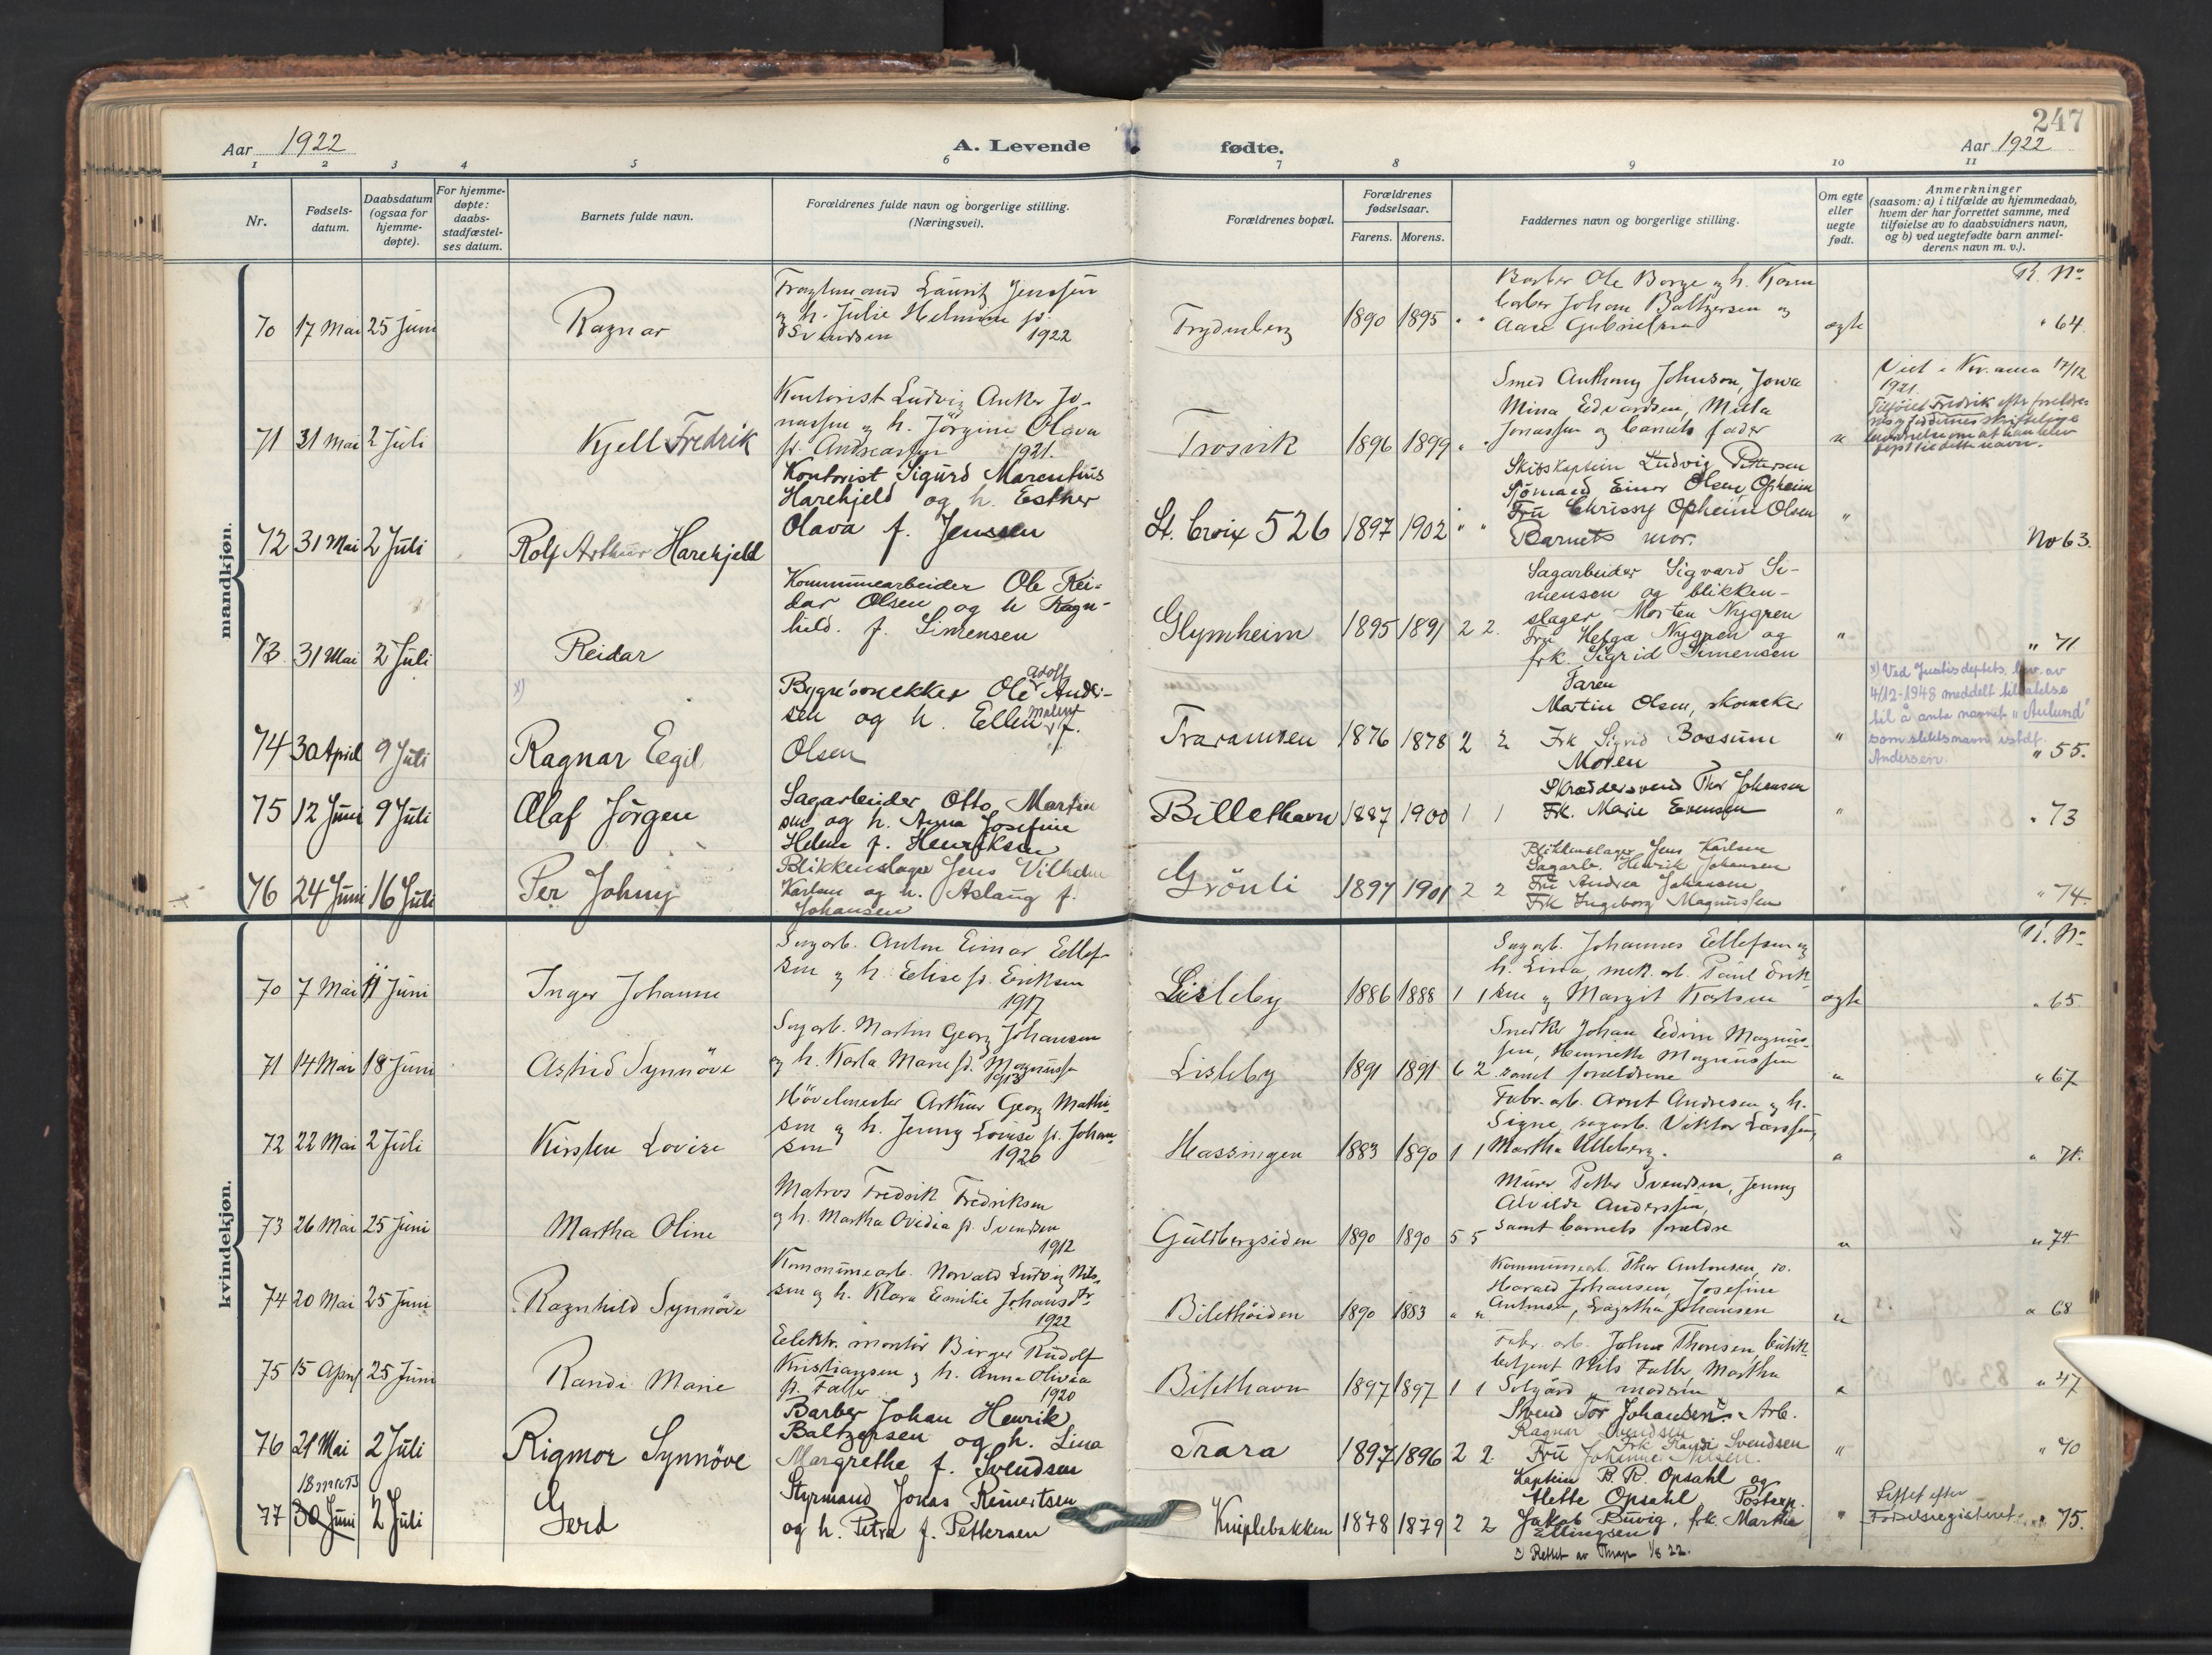 247
Aar 1922
A. Levende
fødte.
Aar 1922
1 2 3 4 5 6 7 8 9 10 11
Nr.
Fødsels-
datum.
Daabsdatum
(ogsaa for
hjemme-
døpte).
For hjemme-
døpte:
daabs-
stadfæstel-
ses datum.
Barnets fulde navn.
Forældrenes fulde navn og borgerlige stilling.
(Næringsvei).
Forældrenes bopæl.
Forældrenes
fødselsaar.
Farens. Morens.
Faddernes navn og borgerlige stilling.
Om egte
eller
uegte
født.
Anmerkninger
(saasom: a) i tilfælde av hjemmedaab,
hvem der har forrettet samme, med
tilføielse av to daabsvidners navn,
og b) ved uegtefødte barn anmel-
derens navn m. v.).
mandkjøn.
70 17 Mai 25 Juni
Ragnar
Lauritz Jenssen
og h. Julie Helmine f.
Svendsen 1922
Trydenberg
1890 1895 " "
Barber Ole Borge og h. Karen
barber Johan Baltzersen og
Aase Gabrielsen
egte
R. No
" 64
71 31 Mai 2 Juli
Kjell Fredrik
Kontorist Ludvig Anker Jo-
nassen og h. Jörgine Olava
f. Andreassen 1921.
Trosvik
1896 1899 "
Smed Anthony Johnson, Jowa
Mina Edvardsen, Milla
Jonassen og barnets fader
"
Viet i 17/12
1921.
Tilföiet Fredrik efter foreldre-
nes og faddernes skriftelige
om at han blev
döpt til dette navn.
72 31 Mai 2 Juli
Rolf Arthur Harehjeld
Kontorist Sigurd Marentius
Harehjeld og h. Esther
Olava f. Jenssen
St. Croix 526
1897 1902 " "
Skibskaptein Ludvig Pettersen
Sjömand Einar Olsen Opheim
Fru Chrissy Opheim Olsen
Barnets mor.
"
No 63.
73 31 Mai 2 Juli
Reidar
Kommunearbeider Ole Rei-
dar Olsen og h Ragn-
hild. f. Simensen
Glymheim
1895 1891 2 2.
Sagarbeider Sigvard Si-
mensen og blikken-
slager Morten Nygren
Fru Helga Nygren og
frk. Sigrid Simensen
"
" 71
74 30 April 9 Juli
x)
Ragnar Egil
Bygn.snekker Ole Adolf Ander-
sen og h. Ellen Malene f.
Olsen
Traraveien
1876 1878 2 2
Faren
Martin Olsen, skomaker
Frk Sigrid Bossum
Moren
"
x) Ved Justisdeptets. bev. av
4/12-1948 meddelt tillatelse
til å anta navnet "Aulund"
som slektsnavn istedf.
Andersen.
" 55.
75 12 Juni 9 Juli
Olaf Jörgen
Sagarbeider Otto Martin
sen og h. Anna Josefine
Helene f. Henriksen
Billethavn
1887 1900 1 1
Skræddersvend Thor Johansen
Frk. Marie Evensen
"
" 73
76 24 Juni 16 Juli
Per Johny
Blikkenslager Jens Vilhelm
Karlsen og h. Aslaug f.
Johansen
Grönli
1897 1901 2 2
Blikkenslager Jens Karlsen
Sagarb. Henrik Johansen
Fru Andrea Johansen
Frk Ingeborg Magnussen
"
" 74.
kvindekjøn.
70 7 Mai 11 Juni
Inger Johanne
Sagarb. Anton Einar Ellef-
sen og h. Elise f. Eriksen
1917
Lisleby
1886 1888 1 1
Sagarb. Johannes Ellefsen og
h. Lina, mek. arb. Paul Erik-
sen og Margit Karlsen
egte
R. No
" 65.
71 14 Mai 18 Juni
Astrid Synnöve
Sagarb. Martin Georg Johansen
og h. Karla Marie f. Magnussen
1913
Lisleby
1891 1891 6 2
Snedker Johan Edvin Magnus-
sen, Henriette Magnussen
samt forældrene
"
" 67
72 22 Mai 2 Juli
Kirsten Lovise
Hövelmester Arthur Georg Mathi-
sen og h. Jenny Lovise f. Johan-
sen 1920
Hassingen
1883 1890 1 1
Fabr. arb. Arnt Andresen og h.
Signe, sagarb. Viktor Larssen,
Martha Ulleberg.
"
" 71.
73 26 Mai 25 Juni
Martha Oline
Matros Fredrik Fredriksen
og h. Martha Ovidia f. Svendsen
1912
Guldbergsiden
1890 1890 5 5
Murer Petter Svendsen, Jenny
Alvilde Anderssen,
samt barnets forældre
"
" 74
74 20 Mai 25 Juni
Ragnhild Synnöve
Kommunearb. Norvald Ludvig Nils-
sen og h. Klara Emilie Johansdtr
1922
Bilethöiden
1890 1883 " "
Kommunearb. Thor Antonsen, do.
Harald Johansen, Josefine
Antonsen, Johansen
"
" 68
75 15 April 25 Juni
Randi Marie
Elektr. montör Birger Rudolf
Kristiansen og h. Anna Olivia
f. Falle 1920
Bilethavn
1897 1897 1 1
Fabr. arb. Johan Thoresen, butik-
betjent Nils Falle, Martha
Solgård og moderen
"
" 47
76 21 Mai 2 Juli
Rigmor Synnöve
Barber Johan Henrik
Baltzersen og h. Lina
Margrethe f. Svendsen
Trara
1897 1896 2 2
Svend Tor Johansen. Arb.
Ragnar Svendsen
Frk Randi Svendsen
Fru Johanne Nilsen.
"
" 70
77 18 marts 30 Juni 2 Juli
Gerd
Styrmand Jonas Reinertsen
og h. Petra f. Pettersen
Kniplebakken
1878 1879 2 2
Kaptein B. R. Opsahl og
Mette Opsahl Postexp.
Jakob Buvig, frk. Martha
Ellingsen
x) Rettet av 1/8 22.
"
Rettet efter
Fødselsregisteret
" 75.